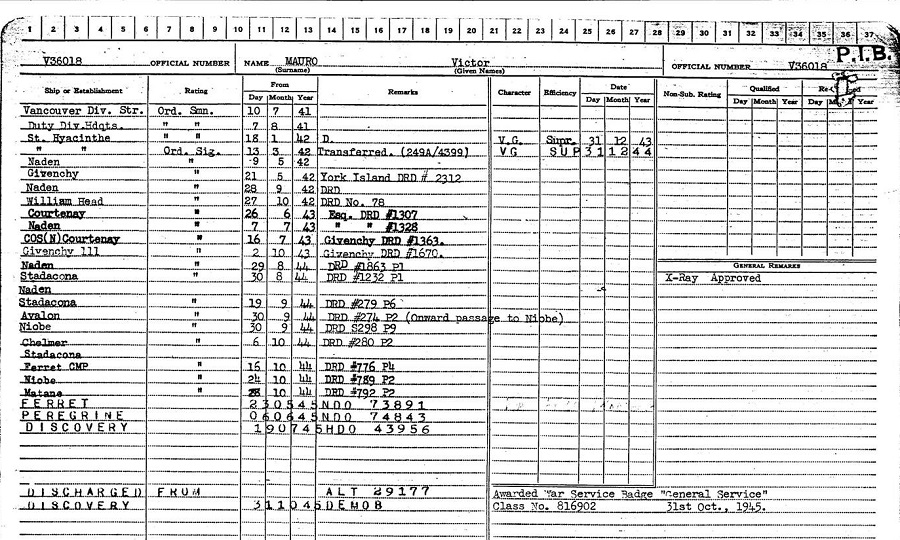 1 2 3 4 5 6 7 8 9 10 11 12 13 14 15 16 17 18 19 20 21 22 23 24 25 26 27 28 29 30 31 32 33 34 35 36 37
P.I.B.
V36018 OFFICIAL NUMBER NAME MAURO Victor OFFICIAL NUMBER V36018
(Surname) (Given Names)
Ship or Establishment Rating From Remarks Character Efficiency Date Non-Sub. Rating Qualified
Day Month Year Day Month Year Day Month Year Day Year
Vancouver Div. Str. Ord. Smn. 10 7 41
Duty Div.Hdqts. " " 7 8 41
St. Hyacinthe " " 18 1 42 D. V.G. Supr. 31 12 43
" " Ord. Sig. 13 3 42 Transferred. (249A/4399) VG SUP 31 12 44
Naden " 9 5 42
Givenchy 21 5 42 York Island DRD # 2312
Naden " 28 9 42 DRD
William Head " 27 10 42 DRD No. 78
Courtenay " 26 6 43 Esq. DRD #1307
Naden " 7 7 43 " " #1328
COS(N)Courtenay " 16 7 43 Givenchy DRD #1363.
Givenchy 111 " 2 10 43 Givenchy DRD #1670.
Naden " 29 8 44 DRD #1863 P1
Stadacona " 30 8 44 DRD #1232 P1
Naden
Stadacona " 19 9 44 DRD #279 P6
Avalon " 30 9 44 DRD #274 P2 (Onward passage to Niobe)
Niobe " 30 9 44 DRD S298 P9
Chelmer " 6 10 44 DRD #280 P2
Stadacona
Ferret CMP " 16 10 44 DRD #776 P4
Niobe " 24 10 44 DRD #789 P2
Matane " 28 10 44 DRD #792 P2
FERRET 230545 NDO 73891
PEREGRINE 060645 NDO 74843
DISCOVERY 190745 HDO 43956
DISCHARGED FROM ALT 29177
DISCOVERY 311045 DEMOB
GENERAL REMARKS
X-Ray Approved
Awarded War Service Badge "General Service"
Class No. 816902 31st Oct., 1945.